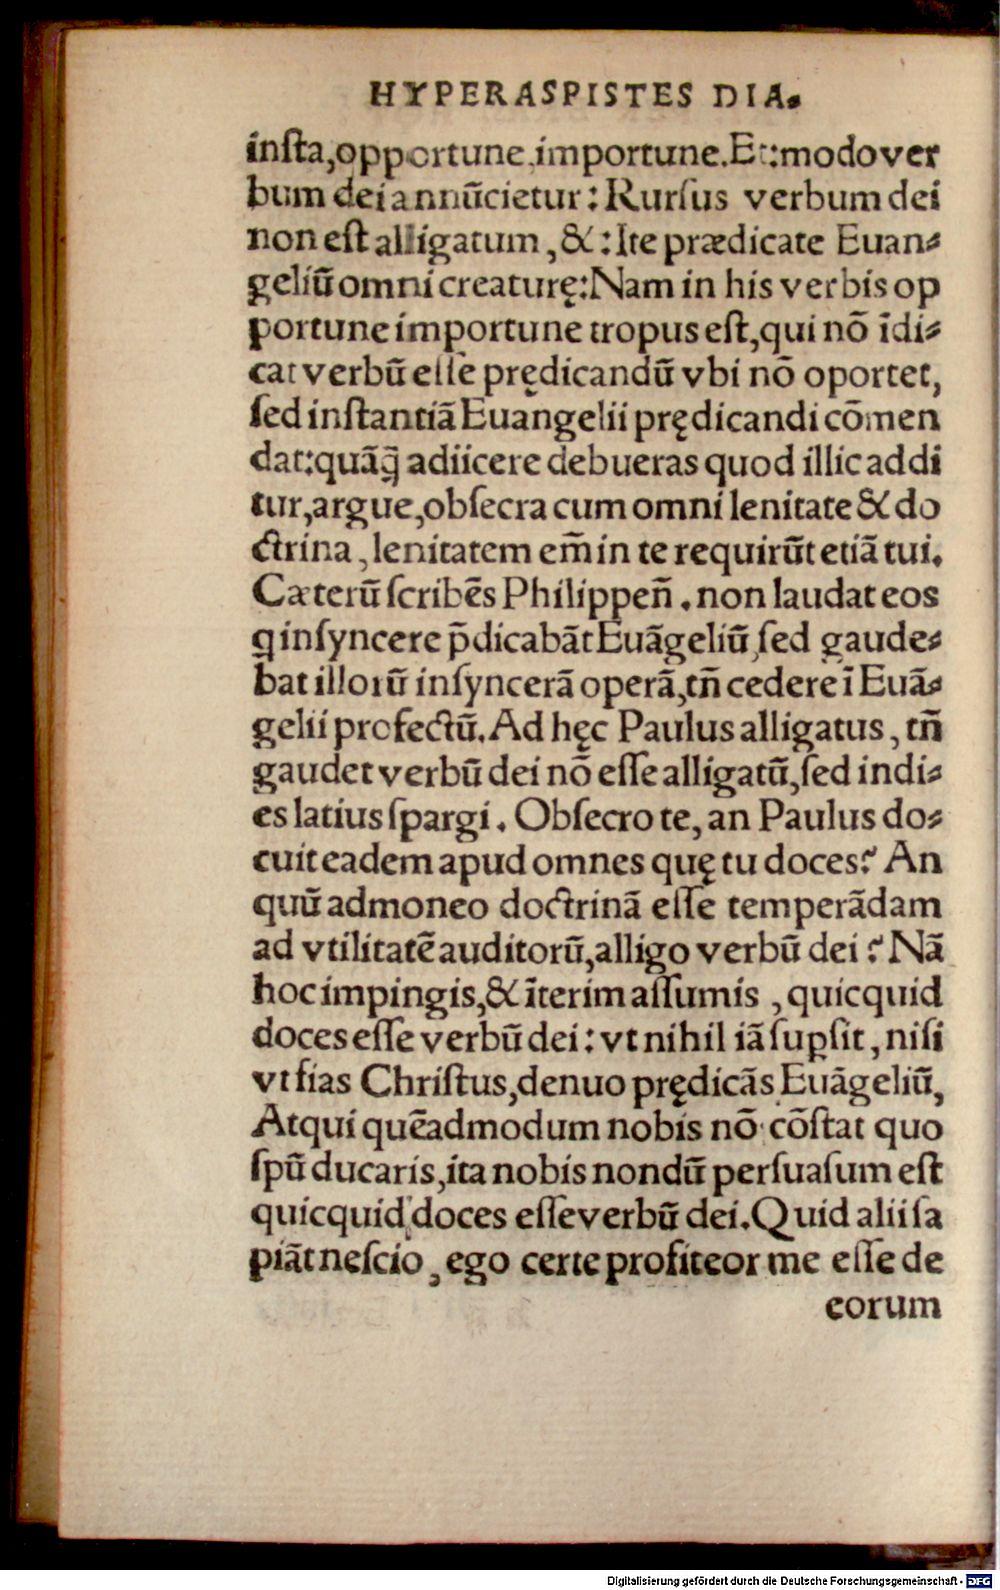 HYPERASPISTES DIA.
insta,opportune,importune.Et:modo ver
bum dei annũcietur: Rursus verbum dei
non est alligatum, &: Ite prædicate Euan-
geliũ omni creaturę: Nam in his verbis op
portune importune tropus est,qui nõ ĩdi-
cat verbũ esse prędicandũ vbi nõ oportet,
sed instantiã Euangelii prędicandi cõmen
dat:quãq̃ adiicere debueras quod illic addi
tur,argue,obsecra cum omni lenitate & do
ctrina, lenitatem em̃ in te requirũt etiã tui.
Cæterũ scribẽs Philippeñ. non laudat eos
q insyncere p̃dicabãt Euãgeliũ,sed gaude-
bat illorũ insyncerã operã,tñ cedere ĩ Euã-
gelii profectũ. Ad hęc Paulus alligatus, tñ
gaudet verbũ dei nõ esse alligatũ,sed indi-
es latius spargi. Obsecro te, an Paulus do-
cuit eadem apud omnes quę tu doces? An
quũ admoneo doctrinã esse temperãdam
ad vtilitatẽ auditorũ,alligo verbũ dei? Nã
hoc impingis,& ĩterim assumis, quicquid
doces esse verbũ dei: vt nihil iã supsit, nisi
vt fias Christus,denuo prędicãs Euãgeliũ,
Atqui quẽadmodum nobis nõ cõstat quo
spũ ducaris,ita nobis nondũ persuasum est
quicquid doces esse verbũ dei. Quid alii sa
piãt nescio, ego certe profiteor me esse de
eorum
Digitalisierung gefördert durch die Deutsche Forschungsgemeinschaft - DFG